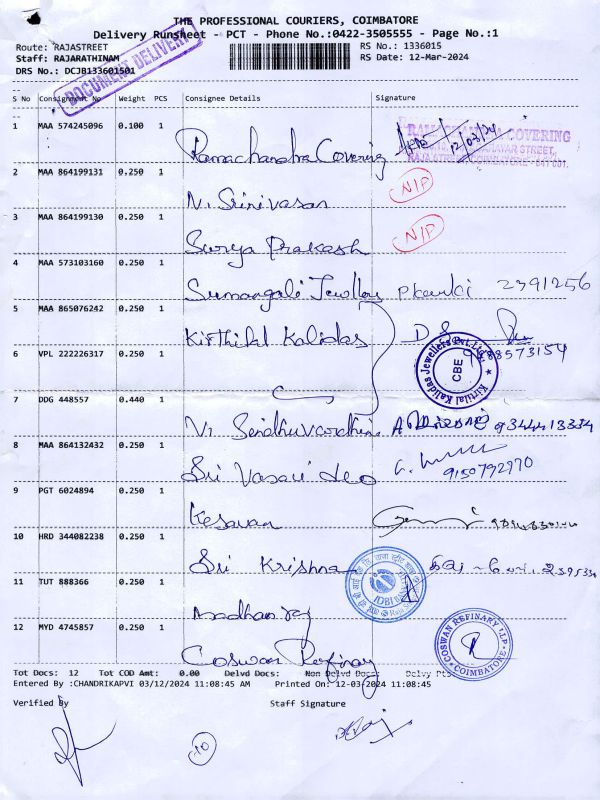 THE PROFESSIONAL COURIERS, COIMBATORE
Delivery Runsheet - PCT - Phone No.:0422-3505555 - Page No.:1
Route: RAJASTREET
RS No.: 1336015
Staff: RAJARATHINAM
RS Date: 12-Mar-2024
DRS No.: DCJB133601501
DOCUMENT DELIVERY
S No Consignment No Weight PCS Consignee Details Signature
1 MAA 574245096 0.100 1 Ramachandra Covering 12/03/24
RAMACHANDRA COVERING
RAJA STREET, COIMBATORE - 641 001.
2 MAA 864199131 0.250 1 N. Srinivasan N/P
3 MAA 864199130 0.250 1 Surya Prakash N/P
4 MAA 573103160 0.250 1 Sumangali Jewellers 2391256
5 MAA 865076242 0.250 1 Kirthilal Kalidas
Kirtilal Kalidas Jewellers Pvt.Ltd. CBE
6 VPL 222226317 0.250 1
7 DDG 448557 0.440 1 V. 9344413334
8 MAA 864132432 0.250 1 Sri Vasavi 9150792970
9 PGT 6024894 0.250 1 Kesavan
10 HRD 344082238 0.250 1 Sri Krishna
IDBI BANK
11 TUT 888366 0.250 1 Madhan raj
12 MYD 4745857 0.250 1 Coswan Refinary
COSWAN REFINARY LLP COIMBATORE
Tot Docs: 12 Tot COD Amt: 0.00 Delvd Docs: Non Delvd Docs: Delvy Pts
Entered By :CHANDRIKAPVI 03/12/2024 11:08:45 AM Printed On:12-03-2024 11:08:45
Verified By Staff Signature
10